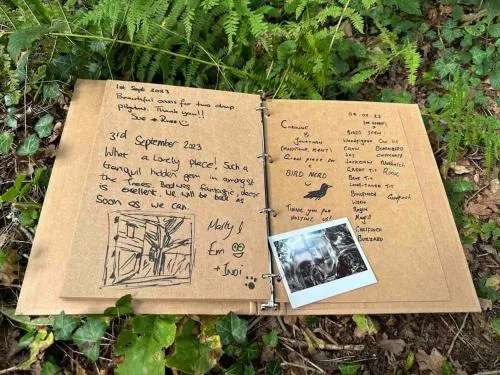 1st Sept 2023
Beautiful oasis for two damp
pilgrims. Thank you!!
Sue + Russ
3rd September 2023
What a lovely place! Such a
tranquil hidden gem in amongst
the Trees. Bed was fantastic, decor
is excellent. We will be back as
soon as we can
Matty &
Em
+ Indi
Corinne
&
Jonathan
(Maidstone, Kent)
Great place for
a
BIRD NERD
Thank you for
having us!
09.23
Birds seen
Woodpigeon
Crow
Jay
Jackdaw
Great Tit
Rook
Blue Tit
Long-tailed Tit
Bullfinch
Wren
Robin
Magpie
Chaffinch
Buzzard
Blackbird
Chiffchaff
Nuthatch
Goldfinch